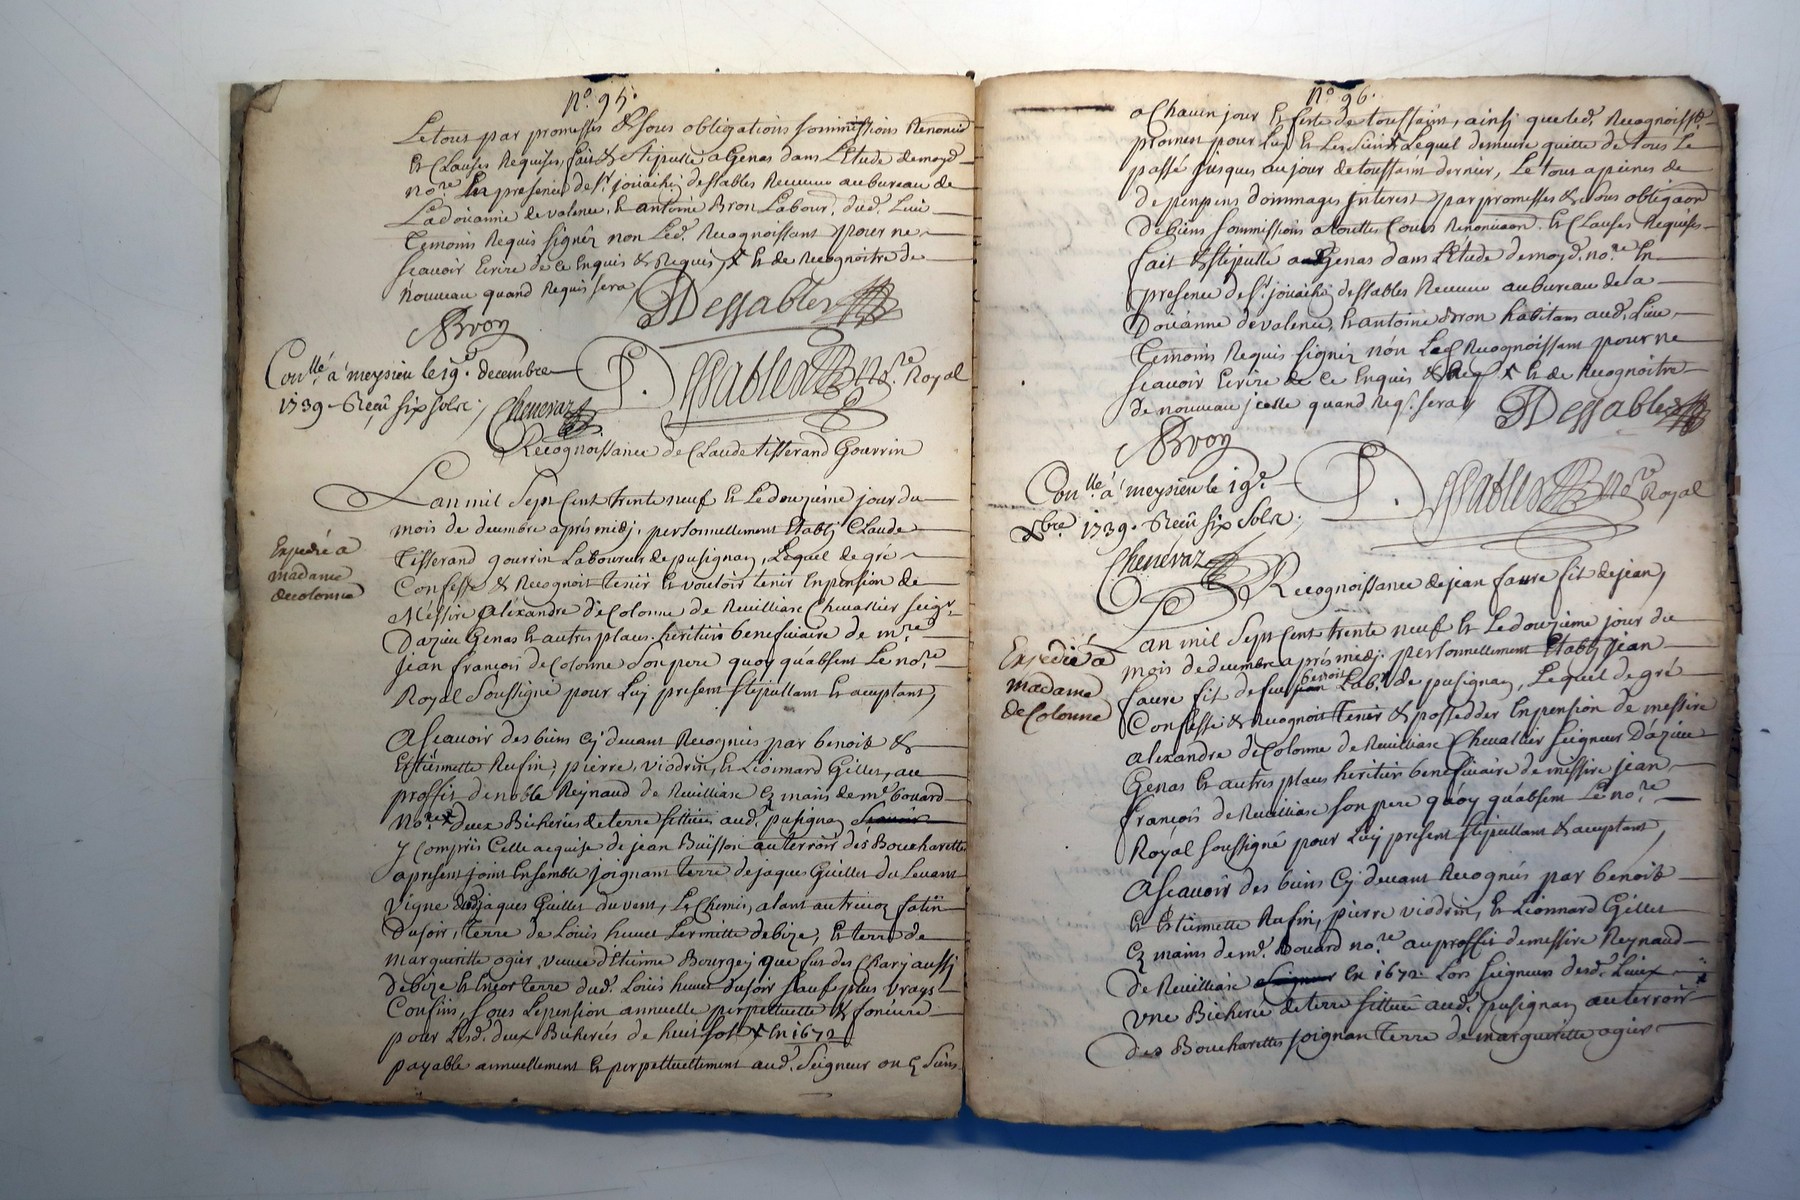 No. 95.
Le tout par promesses & sous obligations sommissions Renonciõ
Et Clauses Requises, fait & stipullé a Genas dans L'Etude de moyd.
nore. En presence de Sr. joüachin dessables Receveur au bureau de
La doüanne de valence, Et antoine Bron Labour. dud. Lieu
Temoins Requis signés non Led. Recognoissant pour ne
scavoir Ecrire de ce Enquis & Requis, & de Recognoitre de
Nouveau quand Requis sera
Dessables
Bron
Conllé. a meysieu le 19e. decembre
1739. Receu six sols.
Chenevaz
P. Dessables nore. Royal
Recognoissance de Claude tisserand Gourrin
Lan mil Sept Cent trente neuf Et Le douzieme jour du
mois de decembre apres midy, personnellement Etably Claude
Tisserand gourrin Laboureur de pusignan, Lequel de gré
Confesse & Recognoit tenir Et vouloir tenir En pension de
Messire alexandre de Colonne de Reuilliasc Chevallier seigr.
Dazieu Genas Et autres places heritier beneficiaire de mre.
jean françois de Colonne Son pere quoy qu'absent Le nore.
Royal Soussigné pour Luy present stipullant Et acceptant,
Expedié a
madame
decolonne
Ascavoir des biens Cy devant Recognus par benoit &
Estiennette Rufin, pierre viodrin, Et Lionnard Gillet, au
proffit de noble Reynaud de Reuilliasc Ez mains de me. bouard
Nore. deux Bicherées de terre sittuée aud. pusignan
y Compris Celle acquise de jean Buisson au terroir des Boucharettes
a present joint Ensemble joignant terre de jaques Guillet du Levant
vigne dud jaques Guillet du vent, Le Chemin alant au
Du soir, terre de Loüis huvet de bize, Et terre de
marguerite ogier veuve d'Etienne Bourgey que fut des Chary aussi
de bize Et Encor terre dud. Loüis huvet du soir sauf plus vrays
Confins, sous La pension annuelle perpettuelle & fonciere
pour Lesd. deux Bicherées de huit sols En 1672
payable annuellement Et perpettuellement aud. Seigneur ou Ez Siens
No 96.
a Chacun jour Et feste de toussaint, ainsy que led. Recognoisst.
promet pour Luy Et Les Siens Lequel demeure quitte de tous Le
passé jusques au jour de toussaint dernier, Le tout a peines de
depens dommages Interest par promesses & sous obligaon
De biens sommissions a touttes Cours Renonciaon. Et Clauses Requises
fait & stipullé a Genas dans L'Etude de moyd. nore. En
presence de Sr. joüachin dessables Receveur au bureau de la
Doüanne de valence, Et antoine Bron habitans aud. Lieu
Temoins Requis signés non Led Recognoissant pour ne
scavoir Ecrire de Ce Enquis & Req & de Recognoitre
de nouveau jcelle quand Req. sera
Dessables
Bron
Conllé. a meysieu le 19e.
Xbre. 1739. Receu six Sols.
Chenevaz
P. Dessables nore Royal
Recognoissance de jean faure fil de jean,
Lan mil Sept Cent trente neuf Et Le douzieme jour du
mois de decembre apres midy. personnellement Etably jean
benoit
faure fil de feu jean Labr. de pusignan, Lequel de gré
Confesse & Recognoit Tenir & posseder En pension de messire
alexandre de Colonne de Reuilliasc Chevallier Seigneur d'azieu
Genas Et autres places heritier beneficiaire de messire jean
françois de Reuilliasc son pere quoy qu'absent Le nore.
Royal soussigné pour Luy present stipullant & acceptant,
Expedié a
madame
de Colonne
Ascavoir des biens Cy devant Recognus par benoit
Et Estiennette Rufin, pierre viodrin, Et Lionnard Gillet
Ez mains de me. Bouard nore. au proffit de messire Reynaud
De Reuilliasc En 1672. Lors Seigneur desd. Lieux
une Bicherée de terre sittuée aud. pusignan au terroir
des Boucharettes joignant terre de marguerite ogier